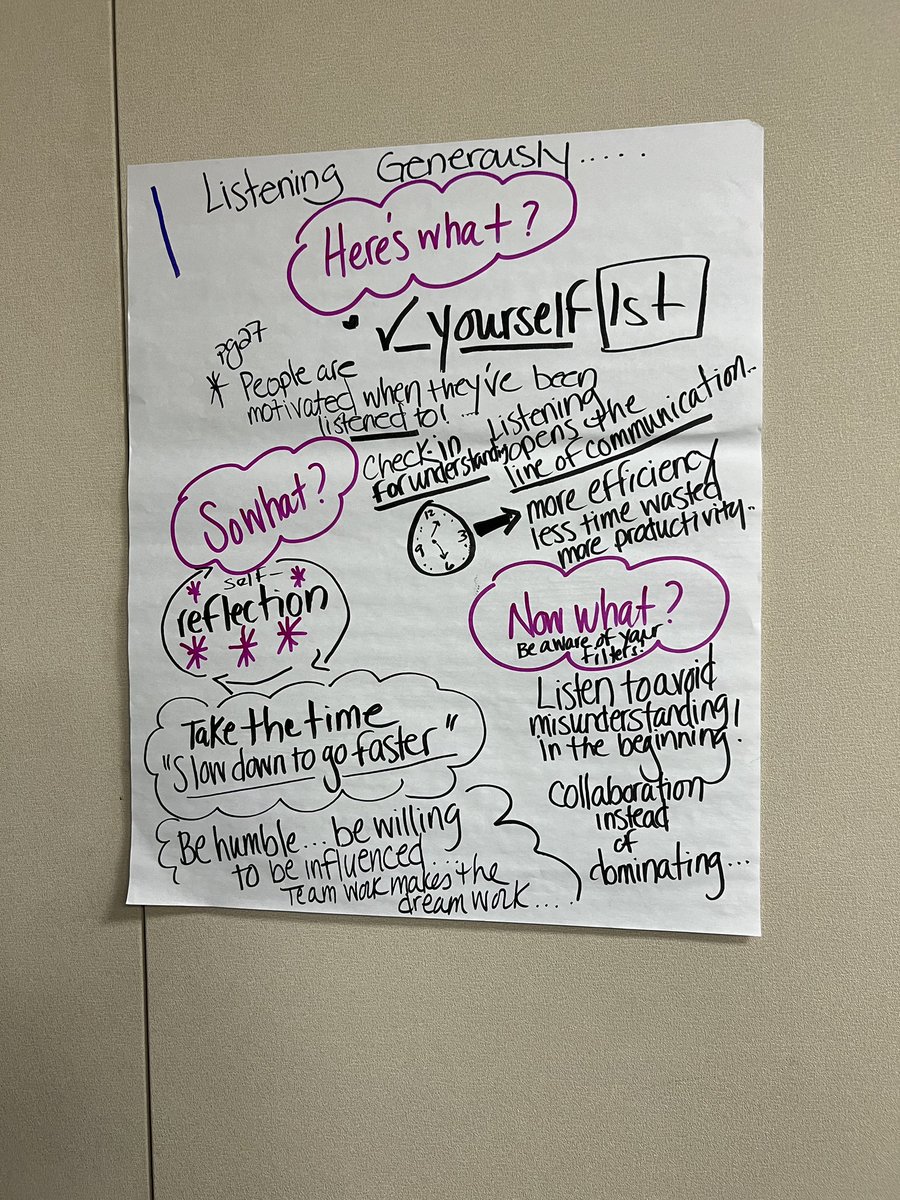 Listening Generously.....
Here's what?
• ✓ yourself 1st
pg27
* People are
motivated when they've been
listened to!...
Check-in
for understanding
Listening
opens the
line of communication...
12
3
6
9
more efficiency
less time wasted
more productivity.
So what?
self-
reflection
Now what?
Be aware of your
filters!
Take the time
"Slow down to go faster"
Listen to avoid
misunderstanding
in the beginning.
Collaboration
instead
of
dominating...
Be humble... be willing
to be influenced....
Team work makes the
dream work....